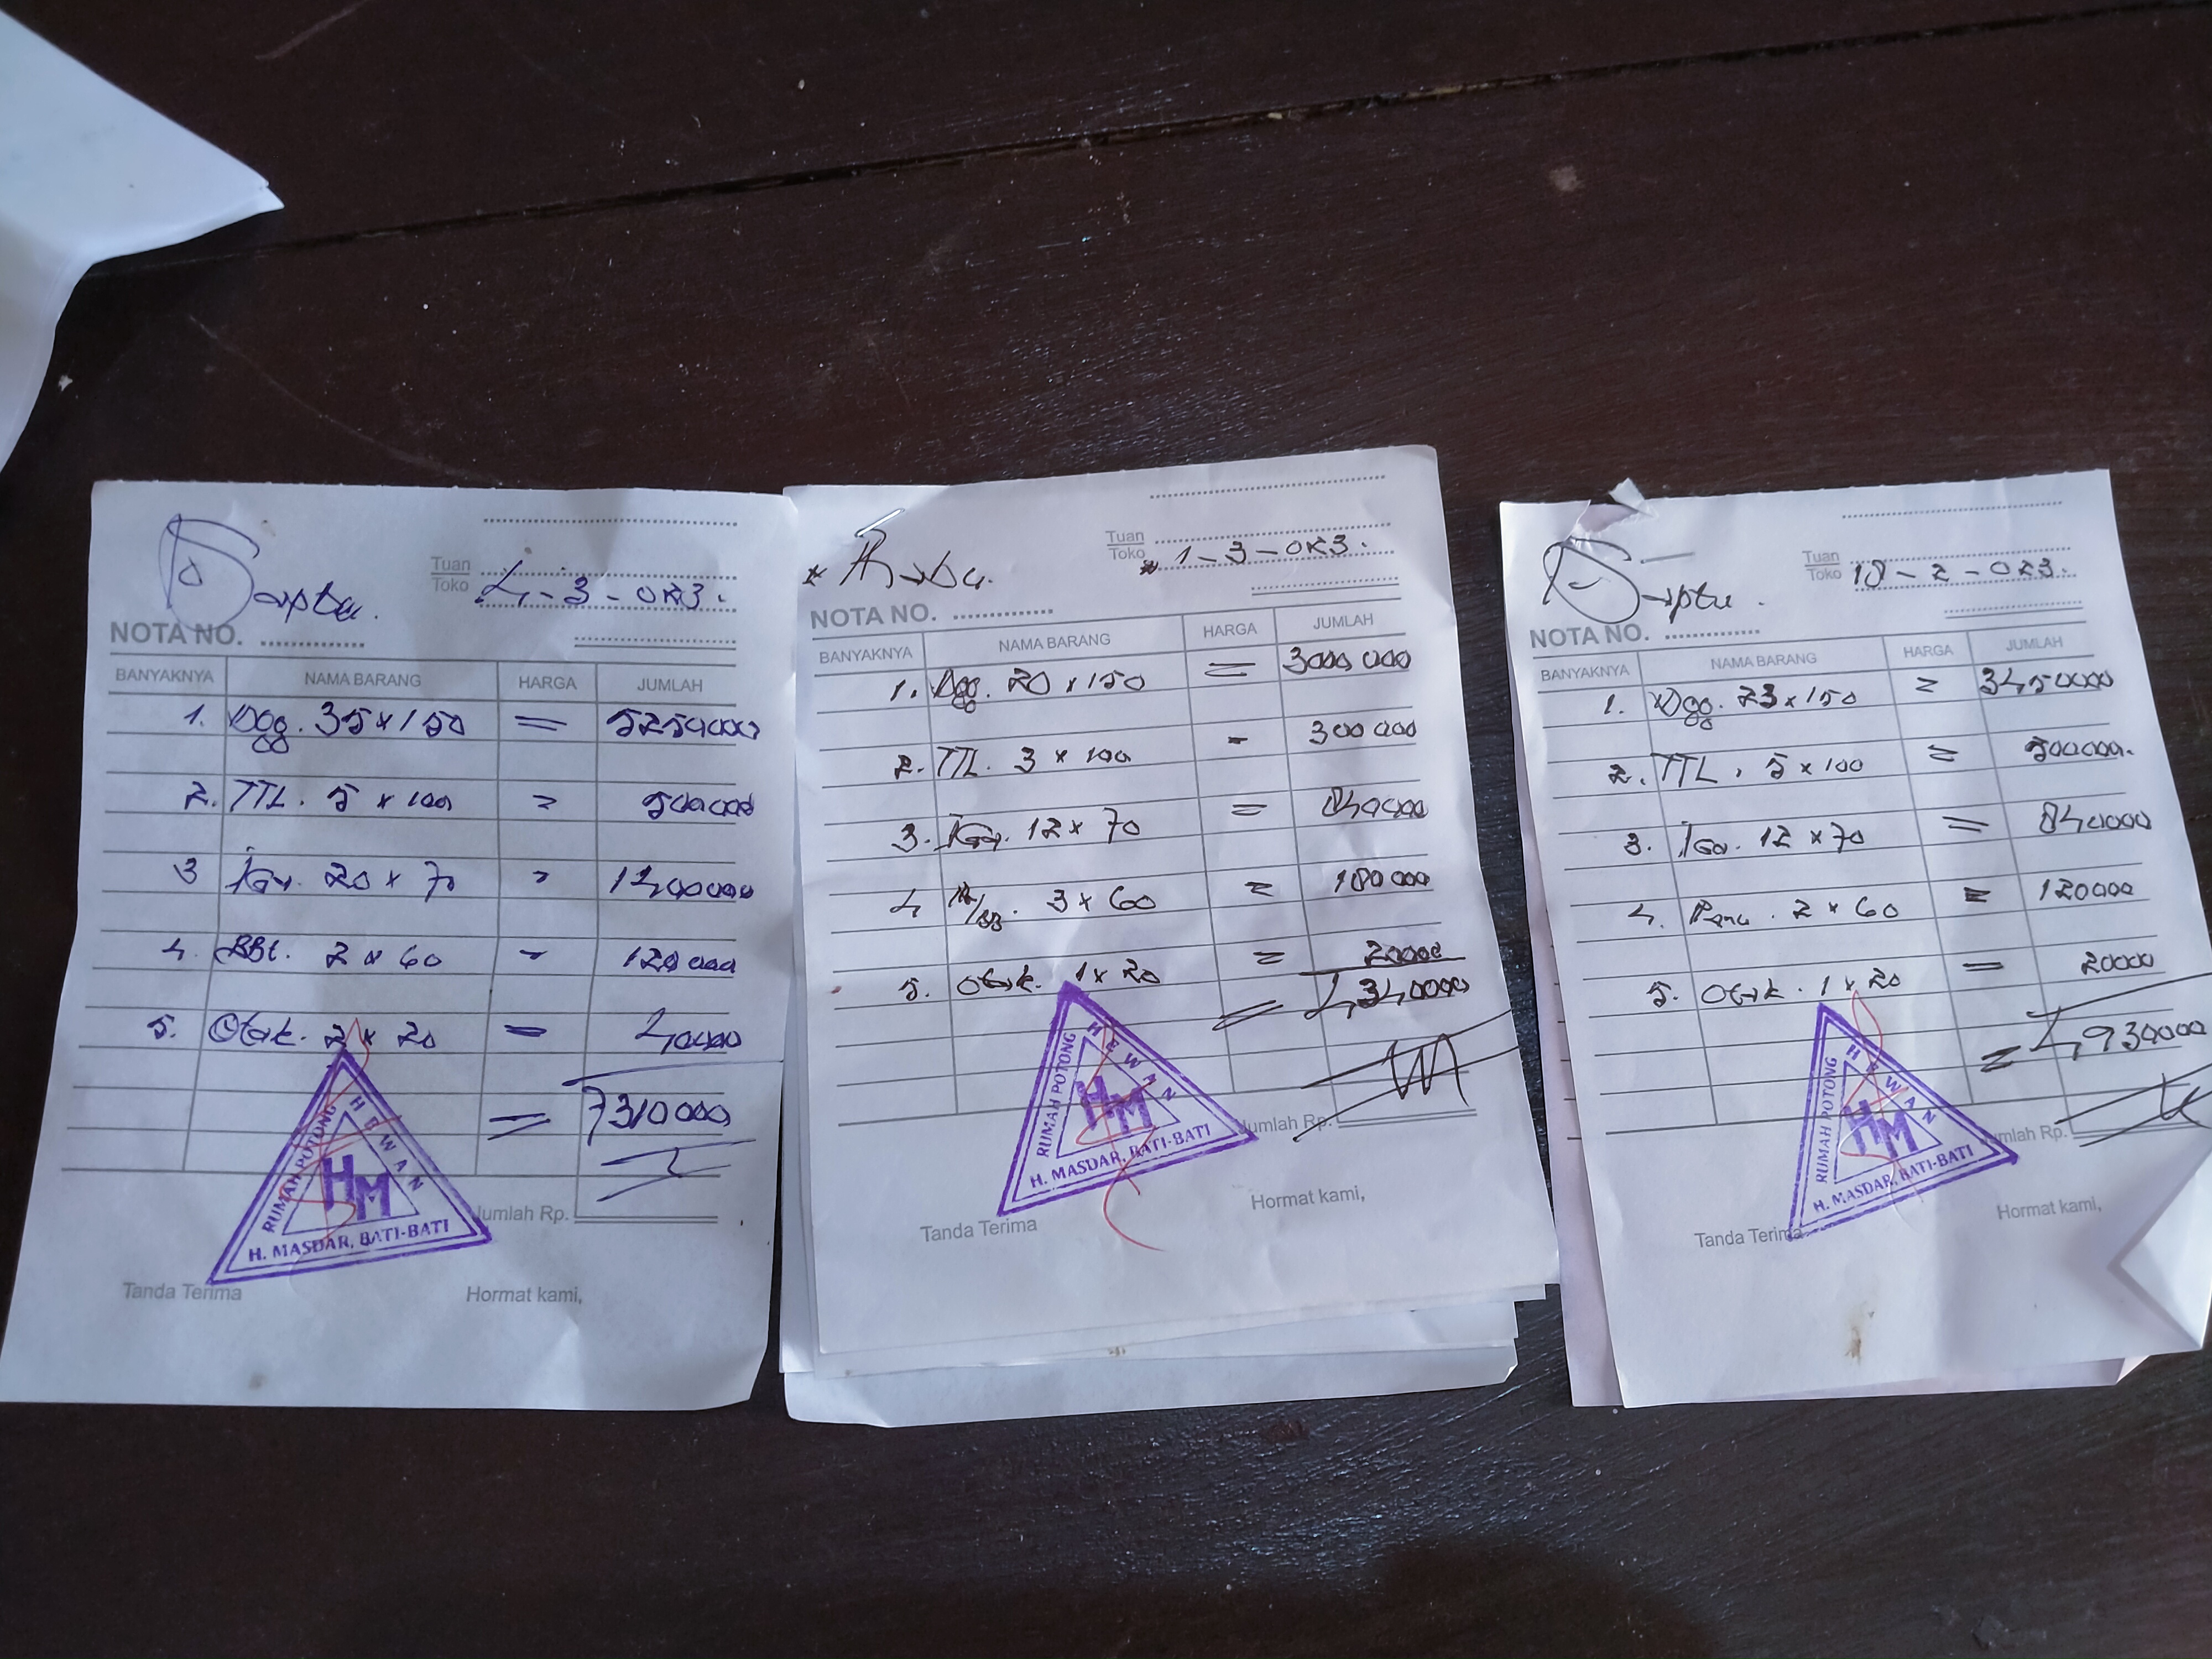 Saptu.
Tuan
Toko 4-3-023.
NOTA NO.
BANYAKNYA NAMA BARANG HARGA JUMLAH
1. Dgg. 35 x 150 = 5250000
2. TTL. 5 x 100 = 500000
3 Iga. 20 x 70 = 1400000
4. BBt. 2 x 60 = 120000
5. Otak. 2 x 20 = 40000
= 7310000
RUMAH POTONG HEWAN
HM
H. MASDAR, BATI-BATI
Jumlah Rp.
Tanda Terima Hormat kami,
* Rabu.
Tuan
Toko * 1-3-023.
NOTA NO.
BANYAKNYA NAMA BARANG HARGA JUMLAH
1. Dgg. 20 x 150 = 3000000
2. TTL. 3 x 100 - 300000
3. Iga. 12 x 70 = 840000
4 3 x 60 = 180000
5. Otak. 1 x 20 = 20000
= 4340000
RUMAH POTONG HEWAN
HM
H. MASDAR, BATI-BATI
Jumlah Rp.
Tanda Terima Hormat kami,
Saptu.
Tuan
Toko 18-2-023.
NOTA NO.
BANYAKNYA NAMA BARANG HARGA JUMLAH
1. Dgg. 23 x 150 = 3450000
2. TTL. 5 x 100 = 500000.
3. Iga. 12 x 70 = 840000
4. 2 x 60 = 120000
5. Otak. 1 x 20 = 20000
= 4930000
RUMAH POTONG HEWAN
HM
H. MASDAR, BATI-BATI
Jumlah Rp.
Tanda Terima Hormat kami,